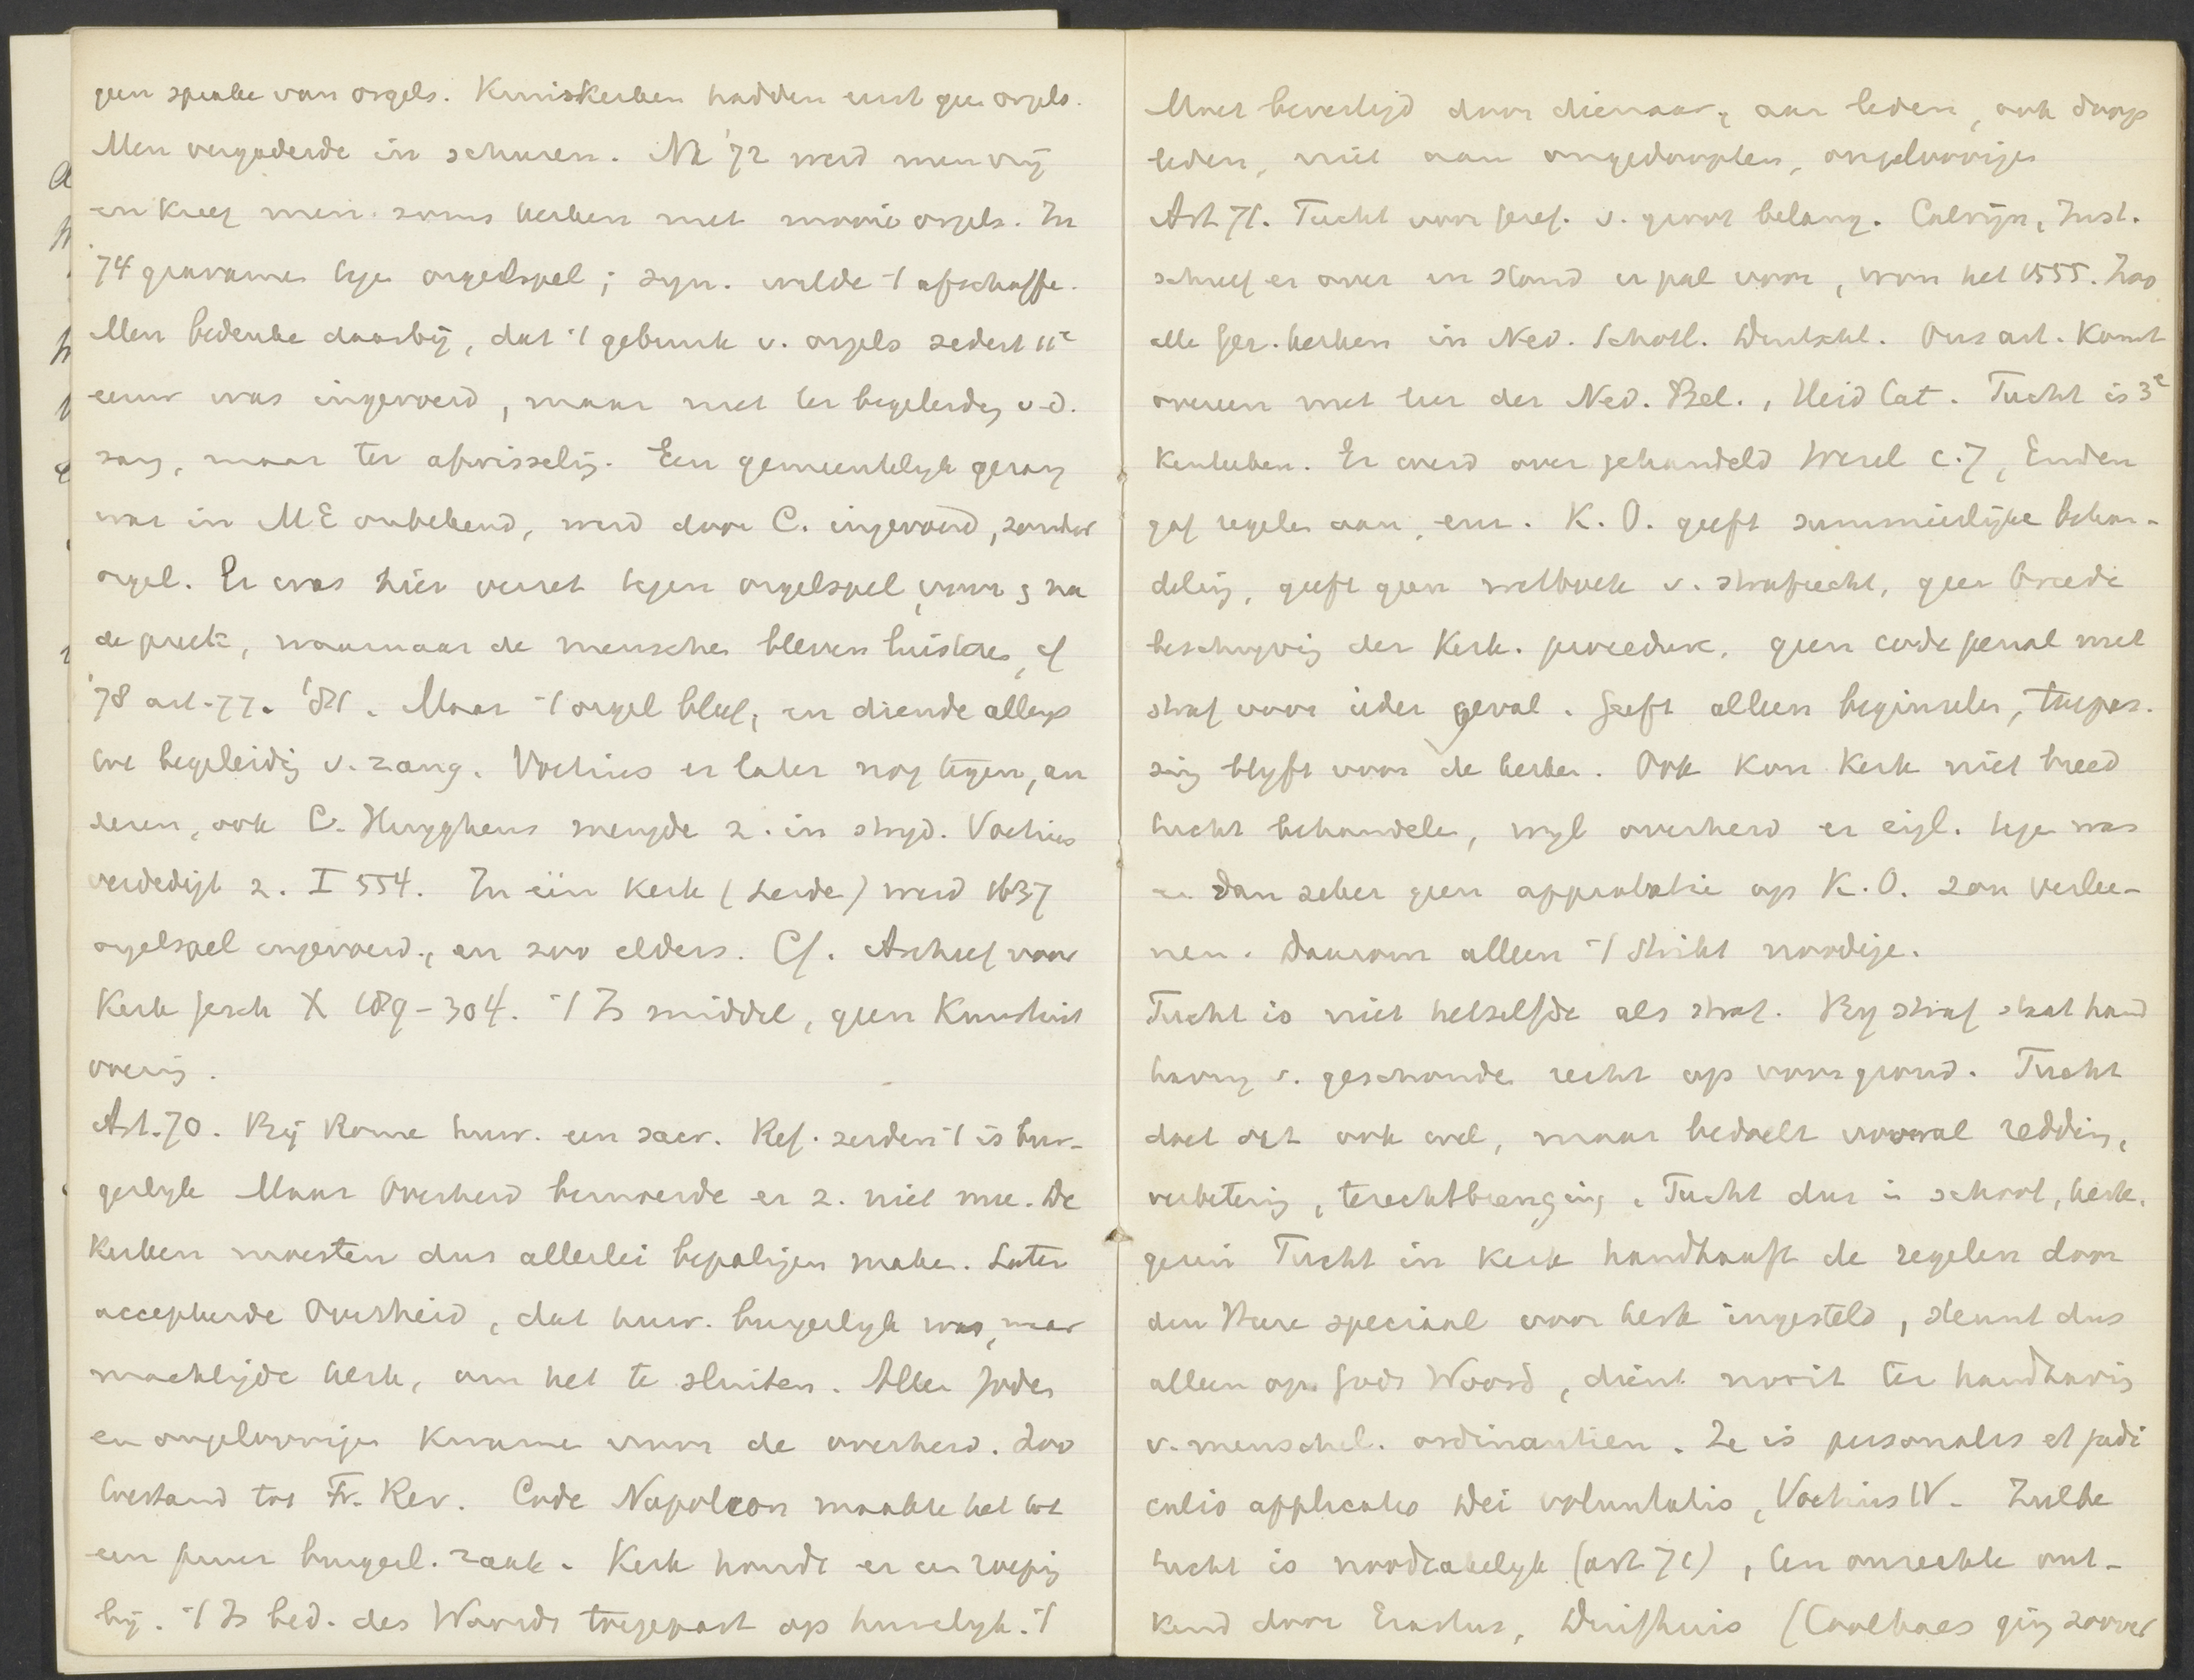 geen sprake van orgels. Kruiskerken hadden eerst geen orgels.
Men vergaderde in schuren. Na '72 werd men vrij
en kreeg men soms kerken met mooie orgels. In
'74 gravamen tegen orgelspel; syn. wilde 't afschaffen.
Men bedenke daarbij, dat 't gebruik v. orgels sedert 11e
eeuw was ingevoerd, maar niet ter begeleiding v.d.
zang, maar ter afwisseling. Een gemeentelijk gezang
was in ME onbekend, werd door C. ingevoerd, zonder
orgel. Er was hier verzet tegen orgelspel voor & na
de preek, waarnaar de menschen bleven luisteren, cf
'78 art. 77. '81. Maar 't orgel bleef, en diende allengs
tot begeleiding v. zang. Voetius er later nog tegen, an
deren, ook C. Huyghens mengde z. in strijd. Voetius
verdedigt z. I 554. In één kerk (Leide) werd 1637
orgelspel ingevoerd, en zoo elders. Cf. Archief voor
Kerk gesch X 189-304. 't Is middel, geen Kunstuit
voering.
Art. 70. Bij Rome huw. een sacr. Ref. zeiden 't is bur-
gerlyk Maar Overheid bemoeide er z. niet mee. De
Kerken moesten dus allerlei bepalingen maken. Later
accepteerde Overheid, dat huw. burgerlyk was, maar
machtigde kerk, om het te sluiten. Alleen Joden
en ongeloovigen kwamen voor de overheid. Zoo
toestand tot Fr. Rev. Code Napoleon maakte het tot
een puur burgerl. zaak. Kerk houdt er een roeping
bij. 't Is bed. des Woords toegepast op huwelyk. 't
Moet bevestigd door dienaar, aan leden, ook doop
leden, niet aan ongedoopten, ongeloovigen
Art 71. Tucht voor geref. v. groot belang. Calvijn, Inst.
schreef er over en stond er pal voor, won het 1555. Zoo
alle ger. kerken in Ned. Schotl. Duitschl. Ons art. Komt
overeen met leer der Ned. Bel., Heid Cat. Tucht is 3e
kenteeken. Er werd over gehandeld Wesel c. 7, Emden
gaf regelen aan, enz. K.O. geeft summierlijke behan-
deling, geeft geen wetboek v. strafrecht, geen breede
beschryving der Kerk. procedure, geen code penal met
straf voor ieder geval. Geeft alleen beginselen, toepas-
sing blyft voor de kerken. Ook kon Kerk niet breed
tucht behandelen, wyl overheid er eigl. tegen was
en dan zeker geen approbatie op K.O. zou verlee-
nen. Daarom alleen 't strikt noodige.
Tucht is niet hetzelfde als straf. By straf staat hand
having v. geschonden recht op voorgrond. Tucht
doet dit ook wel, maar bedoelt vooral redding,
verbetering, terechtbrenging. Tucht dus in school, kerk,
gezin Tucht in kerk handhaaft de regelen door
den Heere speciaal voor kerk ingesteld, steunt dus
alleen op Gods Woord, dient nooit ter handhaving
v. menschel. ordinantien. Ze is personalis et judi
cialis applicatio Dei voluntatis, Voetius IV. Zulke
tucht is noodzakelyk (art 71), ten onrechte ont-
kend door Erastus, Duifhuis (Coolhaes ging zoover